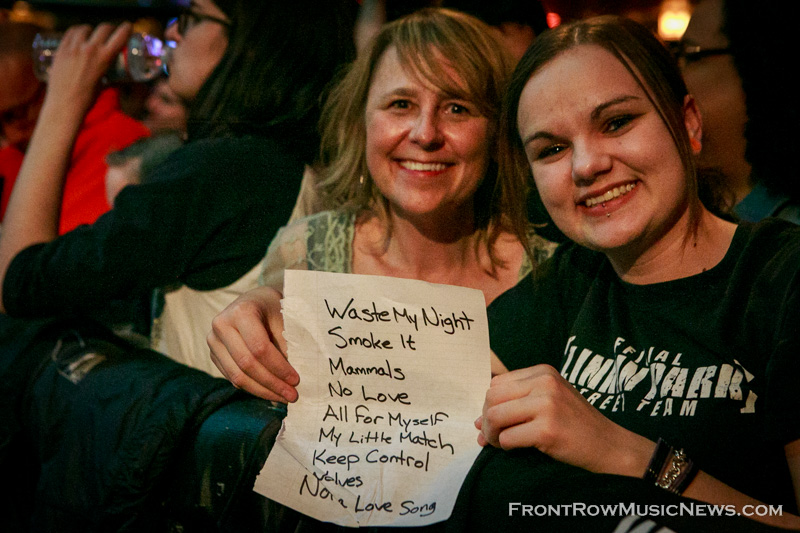 Waste My Night
Smoke It
Mammals
No Love
All For Myself
My Little Match
Keep Control
Wolves
Not a Love Song
OFFICIAL
LINKIN PARK
STREET TEAM
FRONTROWMUSICNEWS.COM